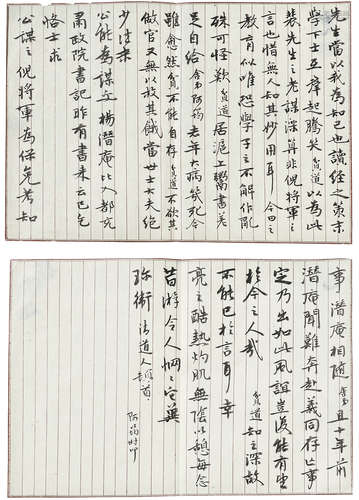 先生當以我為知己也讀經之策京
學下士互庠起驚矣貧道以為此
裴先生之老謀深算非倪將軍之
言也惜無人知其妙用耳今日之
教育似唯恐學子之不解作亂
殊可怪歎貧道居滬上鬻書差
足自給舍弟阿筠去年大病幾死今
雖愈然貧不能自存貧道不欲其
做官又無以救其餓當世士大夫絕
少
公能為謀之楊潛庵比入都充
肅政院書記昨有書來云已乞
恪士求
公謀之倪將軍為保免考知
事潛庵相隨舍弟且十年前
潛庵聞難奔赴義同存亡事
定乃出如此風誼豈復能有生
於今之人哉貧道知之深故
不能已於言耳幸
亮之酷熱灼肌無陰以憩每念
昔游令人惘惘
珍衛清道人頓首
阿筠附叩